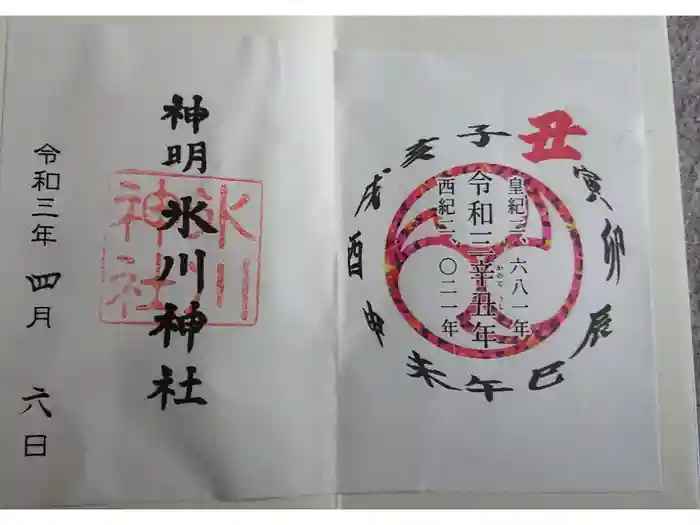 丑
子
亥
戌
酉
申
未
午
巳
辰
卯
寅
皇紀二、六八一年
令和三辛丑年
かのとうし
西紀二、〇二一年
神明氷川神社
氷川
神社
令和三年四月六日